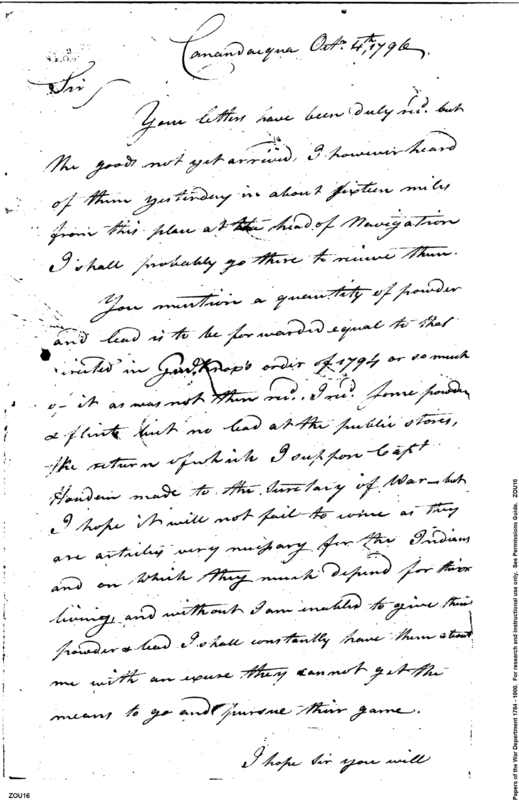 Canandarqua Octr. 4th, 1796
Sir
Your letters have been duly recd. but
the goods not yet arrived, I however heard
of them yesterday in about sixteen miles
from this place at the head of Navigation
I shall probably go there to receive them.
You mention a quantity of powder
and lead is to be forwarded equal to that
directed in Genl. Knox's order of 1794 or so much
of it as was not then recd. I recd. some powder
& flints but no lead at the public stores,
the return of which I suppose Capt.
made to the Secretary of War — but
I hope it will not fail to come as they
are articles very necessary for the Indians
and on which they much depend for their
living, and without I am enabled to give them
powder & lead I shall constantly have them about
me with an excuse they cannot get the
means to go and pursue their game.
I hope Sir you will
ZOU16
Papers of the War Department 1784 - 1800. For research and instructional use only. See Permissions Guide. ZOU16